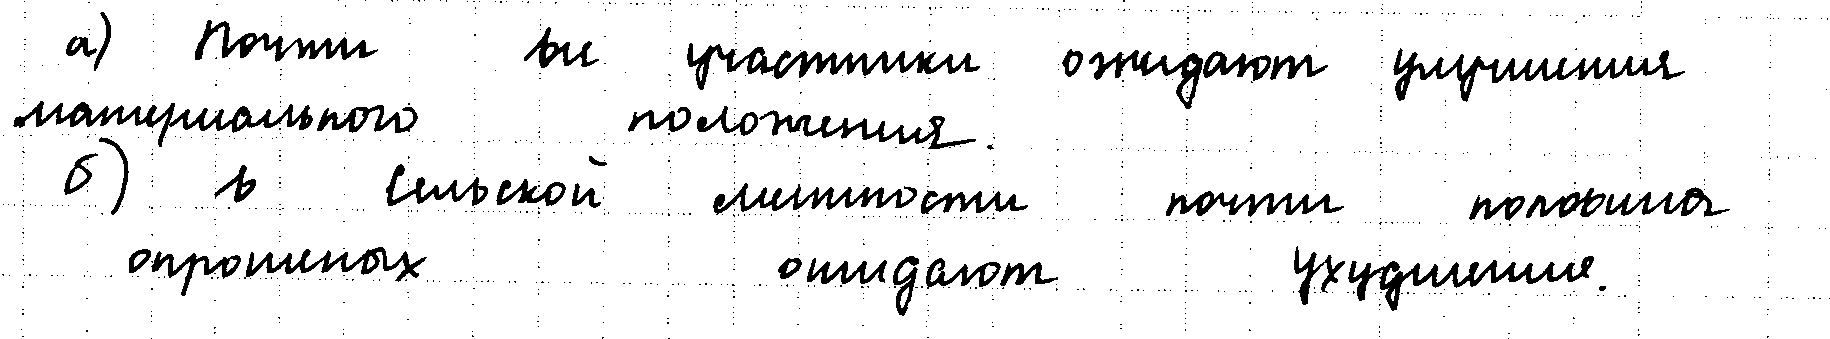 а) Почти все участники ожидают улучшения
материального положения.
б) в сельской местности почти половина
опрошеных ожидают ухудшение.